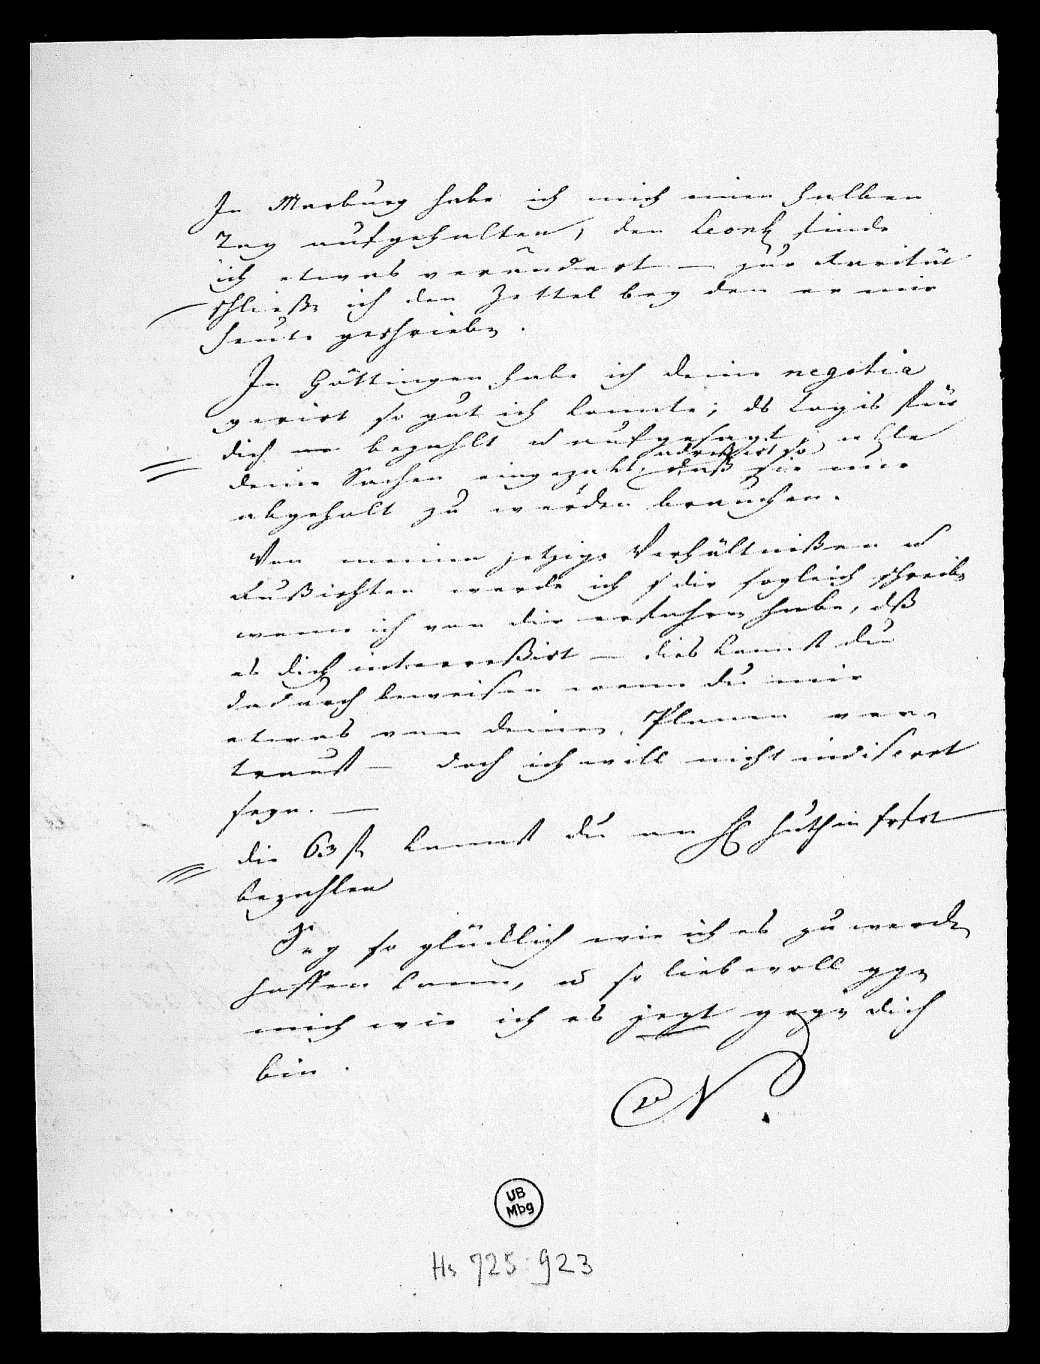 In Marburg habe ich mich einen halben
Tag aufgehalten, den Leonh finde
ich etwas verändert — zur Rarität
schließe ich den Zettel bey den er mir
heute geschrieben.
In Göttingen habe ich deine negotia
gerirt so gut ich konnte; ds Logis für
dich bezahlt u aufgesagt, alle
adressirt so
deine Sachen eingepakt daß sie nur
abgeholt zu werden brauchen.
Von meinen jetzigen Verhältnißen u
Außichten werde ich dir sogleich schreiben
wenn ich von dir erfahren habe, dß
es dich interreßirt — dies kannst du
dadurch beweisen wenn du mir
etwas von deinen Planen ver-
traust — doch ich will nicht indiscret
seyn. —
die 63 f kannst du an H Huth in Frfrt
bezahlen
Sey so glücklich wie ich es zu werden
hoffen kann, u so liebevoll ggn
mich wie ich es jezt gegen dich
bin.
vN.
UB
Mbg
Hs 725:923